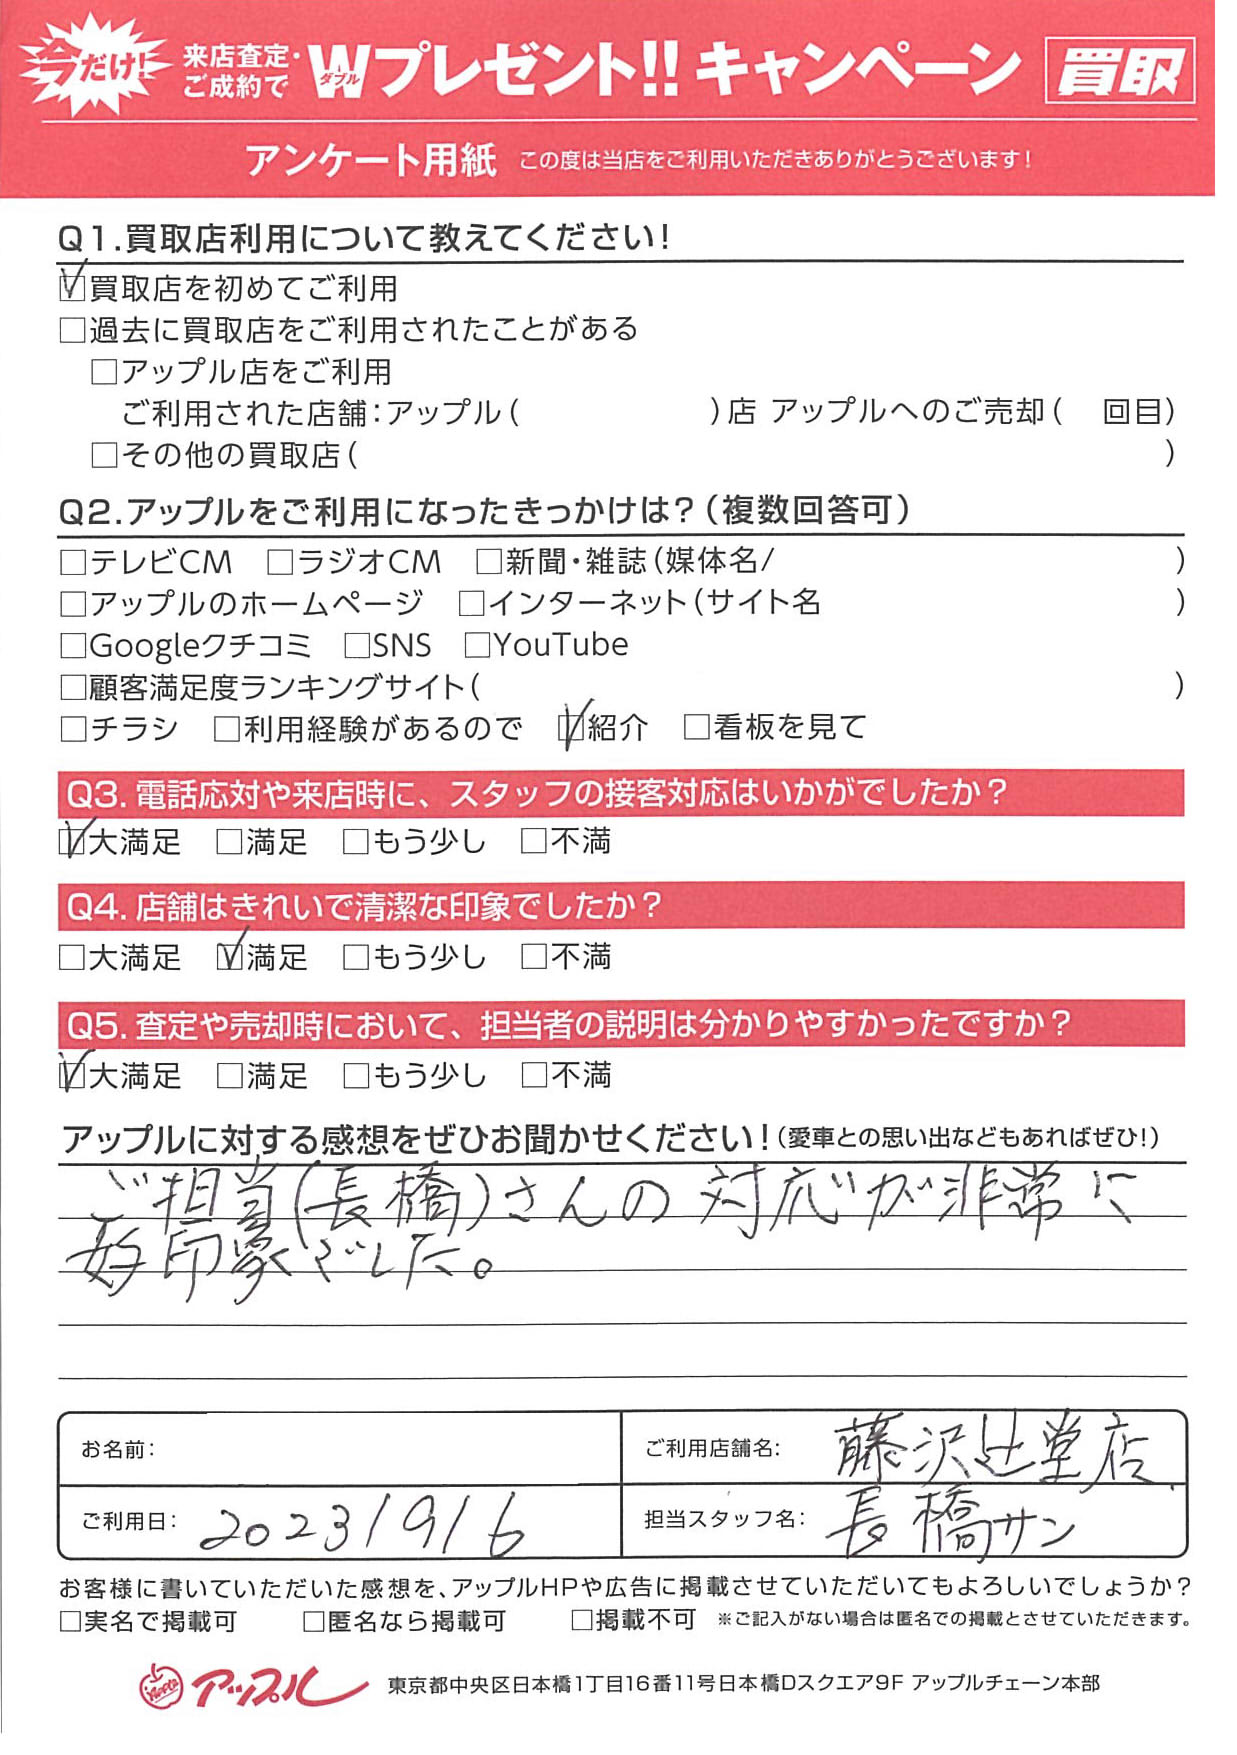 今だけ!
来店査定・ご成約で Wダブルプレゼント!! キャンペーン 買取
アンケート用紙 この度は当店をご利用いただきありがとうございます!
Q1.買取店利用について教えてください!
☑買取店を初めてご利用
□過去に買取店をご利用されたことがある
□アップル店をご利用
ご利用された店舗:アップル( )店 アップルへのご売却( 回目)
□その他の買取店( )
Q2.アップルをご利用になったきっかけは?(複数回答可)
□テレビCM □ラジオCM □新聞・雑誌(媒体名/ )
□アップルのホームページ □インターネット(サイト名 )
□Googleクチコミ □SNS □YouTube
□顧客満足度ランキングサイト( )
□チラシ □利用経験があるので ☑紹介 □看板を見て
Q3. 電話応対や来店時に、スタッフの接客対応はいかがでしたか?
☑大満足 □満足 □もう少し □不満
Q4. 店舗はきれいで清潔な印象でしたか?
□大満足 ☑満足 □もう少し □不満
Q5. 査定や売却時において、担当者の説明は分かりやすかったですか?
☑大満足 □満足 □もう少し □不満
アップルに対する感想をぜひお聞かせください!(愛車との思い出などもあればぜひ!)
ご担当(長橋)さんの対応が非常に
好印象でした。
お名前: ご利用店舗名: 藤沢辻堂店
ご利用日: 2023/9/6 担当スタッフ名: 長橋サン
お客様に書いていただいた感想を、アップルHPや広告に掲載させていただいてもよろしいでしょうか?
□実名で掲載可 □匿名なら掲載可 □掲載不可 ※ご記入がない場合は匿名での掲載とさせていただきます。
Apple アップル 東京都中央区日本橋1丁目16番11号日本橋Dスクエア9F アップルチェーン本部